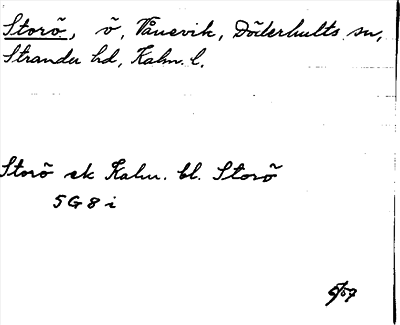 Storö, ö, Vånevik, Döderhults sn,
Stranda hd, Kalm. l.
Storö ek Kalm. bl. Storö
5G8i
5/57